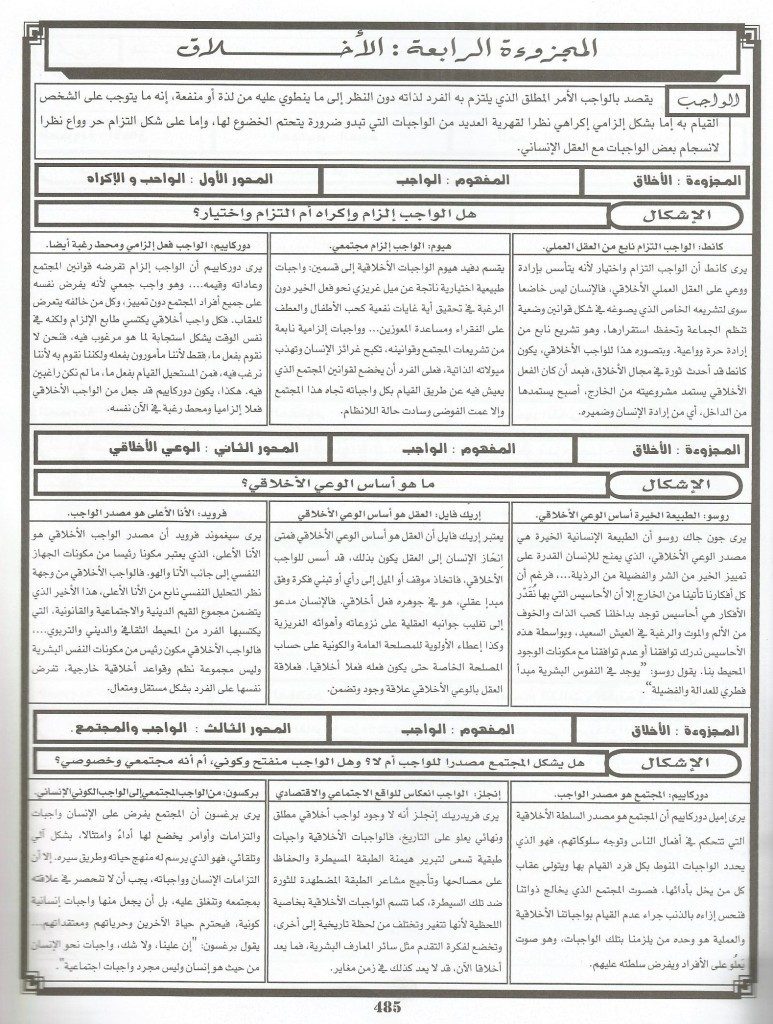 المجزوءة الرابعة : الأخلاق
الواجب يقصد بالواجب الأمر المطلق الذي يلتزم به الفرد لذاته دون النظر إلى ما ينطوي عليه من لذة أو منفعة، إنه ما يتوجب على الشخص
القيام به إما بشكل إلزامي إكراهي نظرا لقهرية العديد من الواجبات التي تبدو ضرورة يتحتم الخضوع لها، وإما على شكل التزام حر وواع نظرا
لانسجام بعض الواجبات مع العقل الإنساني.
المجزوءة : الأخلاق
المفهوم : الواجب
المحور الأول : الواجب و الإكراه
الإشكال
هل الواجب إلزام وإكراه أم التزام واختيار؟
كانط: الواجب التزام نابع من العقل العملي.
يرى كانط أن الواجب التزام واختيار لأنه يتأسس بإرادة
ووعي على العقل العملي الأخلاقي، فالإنسان ليس خاضعا
سوى لتشريعه الخاص الذي يصوغه في شكل قوانين وضعية
تنظم الجماعة وتحفظ استقرارها، وهو تشريع نابع من
إرادة حرة وواعية. وبتصوره هذا للواجب الأخلاقي، يكون
كانط قد أحدث ثورة في مجال الأخلاق، فبعد أن كان الفعل
الأخلاقي يستمد مشروعيته من الخارج، أصبح يستمدها
من الداخل، أي من إرادة الإنسان وضميره.
هيوم: الواجب إلزام مجتمعي.
يقسم دفيد هيوم الواجبات الأخلاقية إلى قسمين: واجبات
طبيعية اختيارية ناتجة عن ميل غريزي نحو فعل الخير دون
الرغبة في تحقيق أية غايات نفعية كحب الأطفال والعطف
على الفقراء ومساعدة المعوزين... وواجبات إلزامية نابعة
من تشريعات المجتمع وقوانينه، تكبح غرائز الإنسان وتهذب
ميولاته الذاتية، فعلى الفرد أن يخضع لقوانين المجتمع الذي
يعيش فيه عن طريق القيام بكل واجباته تجاه هذا المجتمع
وإلا عمت الفوضى وسادت حالة اللانظام.
دوركايم: الواجب فعل إلزامي ومحط رغبة أيضا.
يرى دوركايم أن الواجب إلزام تفرضه قوانين المجتمع
وعاداته وقيمه.... وهو واجب جمعي لأنه يفرض نفسه
على جميع أفراد المجتمع دون تمييز، وكل من خالفه يتعرض
للعقاب. فكل واجب أخلاقي يكتسي طابع الإلزام ولكنه في
نفس الوقت يشكل استجابة لما هو مرغوب فيه، فنحن لا
نقوم بفعل ما، فقط لأننا مأمورون بفعله ولكننا نقوم به لأننا
نرغب فيه، فمن المستحيل القيام بفعل ما، ما لم نكن راغبين
فيه. هكذا، يكون دوركايم قد جعل من الواجب الأخلاقي
فعلا إلزاميا ومحط رغبة في الآن نفسه.
المجزوءة : الأخلاق
المفهوم : الواجب
المحور الثاني : الوعي الأخلاقي
الإشكال
ما هو أساس الوعي الأخلاقي؟
روسو: الطبيعة الخيرة أساس الوعي الأخلاقي.
يرى جون جاك روسو أن الطبيعة الإنسانية الخيرة هي
مصدر الوعي الأخلاقي، الذي يمنح للإنسان القدرة على
تمييز الخير من الشر والفضيلة من الرذيلة.... فرغم أن
كل أفكارنا تأتينا من الخارج إلا أن الأحاسيس التي بها نُقَدِّر
الأفكار هي أحاسيس توجد بداخلنا كحب الذات والخوف
من الألم والموت والرغبة في العيش السعيد، وبواسطة هذه
الأحاسيس ندرك توافقنا أو عدم توافقنا مع مكونات الوجود
المحيط بنا. يقول روسو: "يوجد في النفوس البشرية مبدأ
فطري للعدالة والفضيلة".
إريك فايل: العقل هو أساس الوعي الأخلاقي
يعتبر إريك فايل أن العقل هو أساس الوعي الأخلاقي فمتى
انحاز الإنسان إلى العقل يكون بذلك، قد أسس للواجب
الأخلاقي، فاتخاذ موقف أو الميل إلى رأي أو تبني فكرة وفق
مبدإ عقلي، هو في جوهره فعل أخلاقي. فالإنسان مدعو
إلى تغليب جوانبه العقلية على نزوعاته وأهوائه الغريزية
وكذا إعطاء الأولوية للمصلحة العامة والكونية على حساب
المصلحة الخاصة حتى يكون فعله فعلا أخلاقيا. فعلاقة
العقل بالوعي الأخلاقي علاقة وجود وتضمن.
فرويد: الأنا الأعلى هو مصدر الواجب.
يرى سيغموند فرويد أن مصدر الواجب الأخلاقي هو
الأنا الأعلى، الذي يعتبر مكونا رئيسا من مكونات الجهاز
النفسي إلى جانب الأنا والهو. فالواجب الأخلاقي من وجهة
نظر التحليل النفسي نابع من الأنا الأعلى، هذا الأخير الذي
يتضمن مجموع القيم الدينية والاجتماعية والقانونية. التي
يكتسبها الفرد من المحيط الثقافي والديني والتربوي....
فالواجب الأخلاقي مكون رئيس من مكونات النفس البشرية
وليس مجموعة نظم وقواعد أخلاقية خارجية، تفرض
نفسها على الفرد بشكل مستقل ومتعال.
المجزوءة : الأخلاق
المفهوم : الواجب
المحور الثالث : الواجب والمجتمع.
الإشكال
هل يشكل المجتمع مصدرا للواجب أم لا؟ وهل الواجب منفتح وكوني، أم أنه مجتمعي وخصوصي؟
دوركايم: المجتمع هو مصدر الواجب.
يرى إميل دوركايم أن المجتمع هو مصدر السلطة الأخلاقية
التي تتحكم في أفعال الناس وتوجه سلوكاتهم، فهو الذي
يحدد الواجبات المنوط بكل فرد القيام بها ويتولى عقاب
كل من يخل بأدائها. فصوت المجتمع الذي يخالج ذواتنا
فنحس إزاءه بالذنب جراء عدم القيام بواجباتنا الأخلاقية
والعملية هو وحده من يلزمنا بتلك الواجبات، وهو صوت
يَعلُو على الأفراد ويفرض سلطته عليهم.
إنجلز: الواجب انعكاس للواقع الاجتماعي والاقتصادي
يرى فريدريك إنجلز أنه لا وجود لواجب أخلاقي مطلق
ونهائي يعلو على التاريخ، فالواجبات الأخلاقية واجبات
طبقية تسعى لتبرير هيمنة الطبقة المسيطرة والحفاظ
على مصالحها وتأجيج مشاعر الطبقة المضطهدة للثورة
ضد تلك السيطرة، كما تتسم الواجبات الأخلاقية بخاصية
اللحظية لأنها تتغير وتختلف من لحظة تاريخية إلى أخرى،
وتخضع لفكرة التقدم مثل سائر المعارف البشرية، فما يعد
أخلاقا الآن، قد لا يعد كذلك في زمن مغاير.
بركسون: من الواجب المجتمعي إلى الواجب الكوني الإنساني.
يرى برغسون أن المجتمع يفرض على الإنسان واجبات
والتزامات وأوامر يخضع لها أداءً وامتثالا، بشكل آلي
وتلقائي، فهو الذي يرسم له منهج حياته وطريق سيره. إلا أن
التزامات الإنسان وواجباته، يجب أن لا تنحصر في علاقته
بمجتمعه وتنغلق عليه، بل أن يجعل منها واجبات إنسانية
كونية، فيحترم حياة الآخرين وحرياتهم ومعتقداتهم...
يقول برغسون: "إن علينا، ولا شك، واجبات نحو الإنسان
من حيث هو إنسان وليس مجرد واجبات اجتماعية".
485